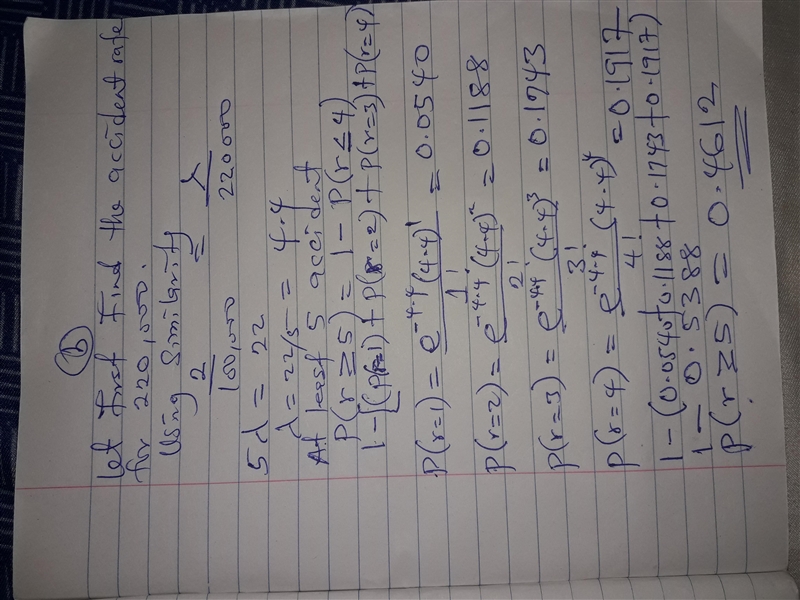 (b)
Let first find the accident rate
for 220,000.
Using Similarity
2/100,000 = λ/220000
5λ = 22
λ = 22/5 = 4.4
At least 5 accident
P(r ≥ 5) = 1 - P(r ≤ 4)
1 - [(P(r=1) + P(r=2) + P(r=3) + P(r=4)
P(r=1) = e^-4.4 (4.4)^1 / 1! = 0.0540
P(r=2) = e^-4.4 (4.4)^2 / 2! = 0.1188
P(r=3) = e^-4.4 (4.4)^3 / 3! = 0.1743
P(r=4) = e^-4.4 (4.4)^4 / 4! = 0.1917
1 - (0.0540 + 0.1188 + 0.1743 + 0.1917)
1 - 0.5388
P(r ≥ 5) = 0.4612